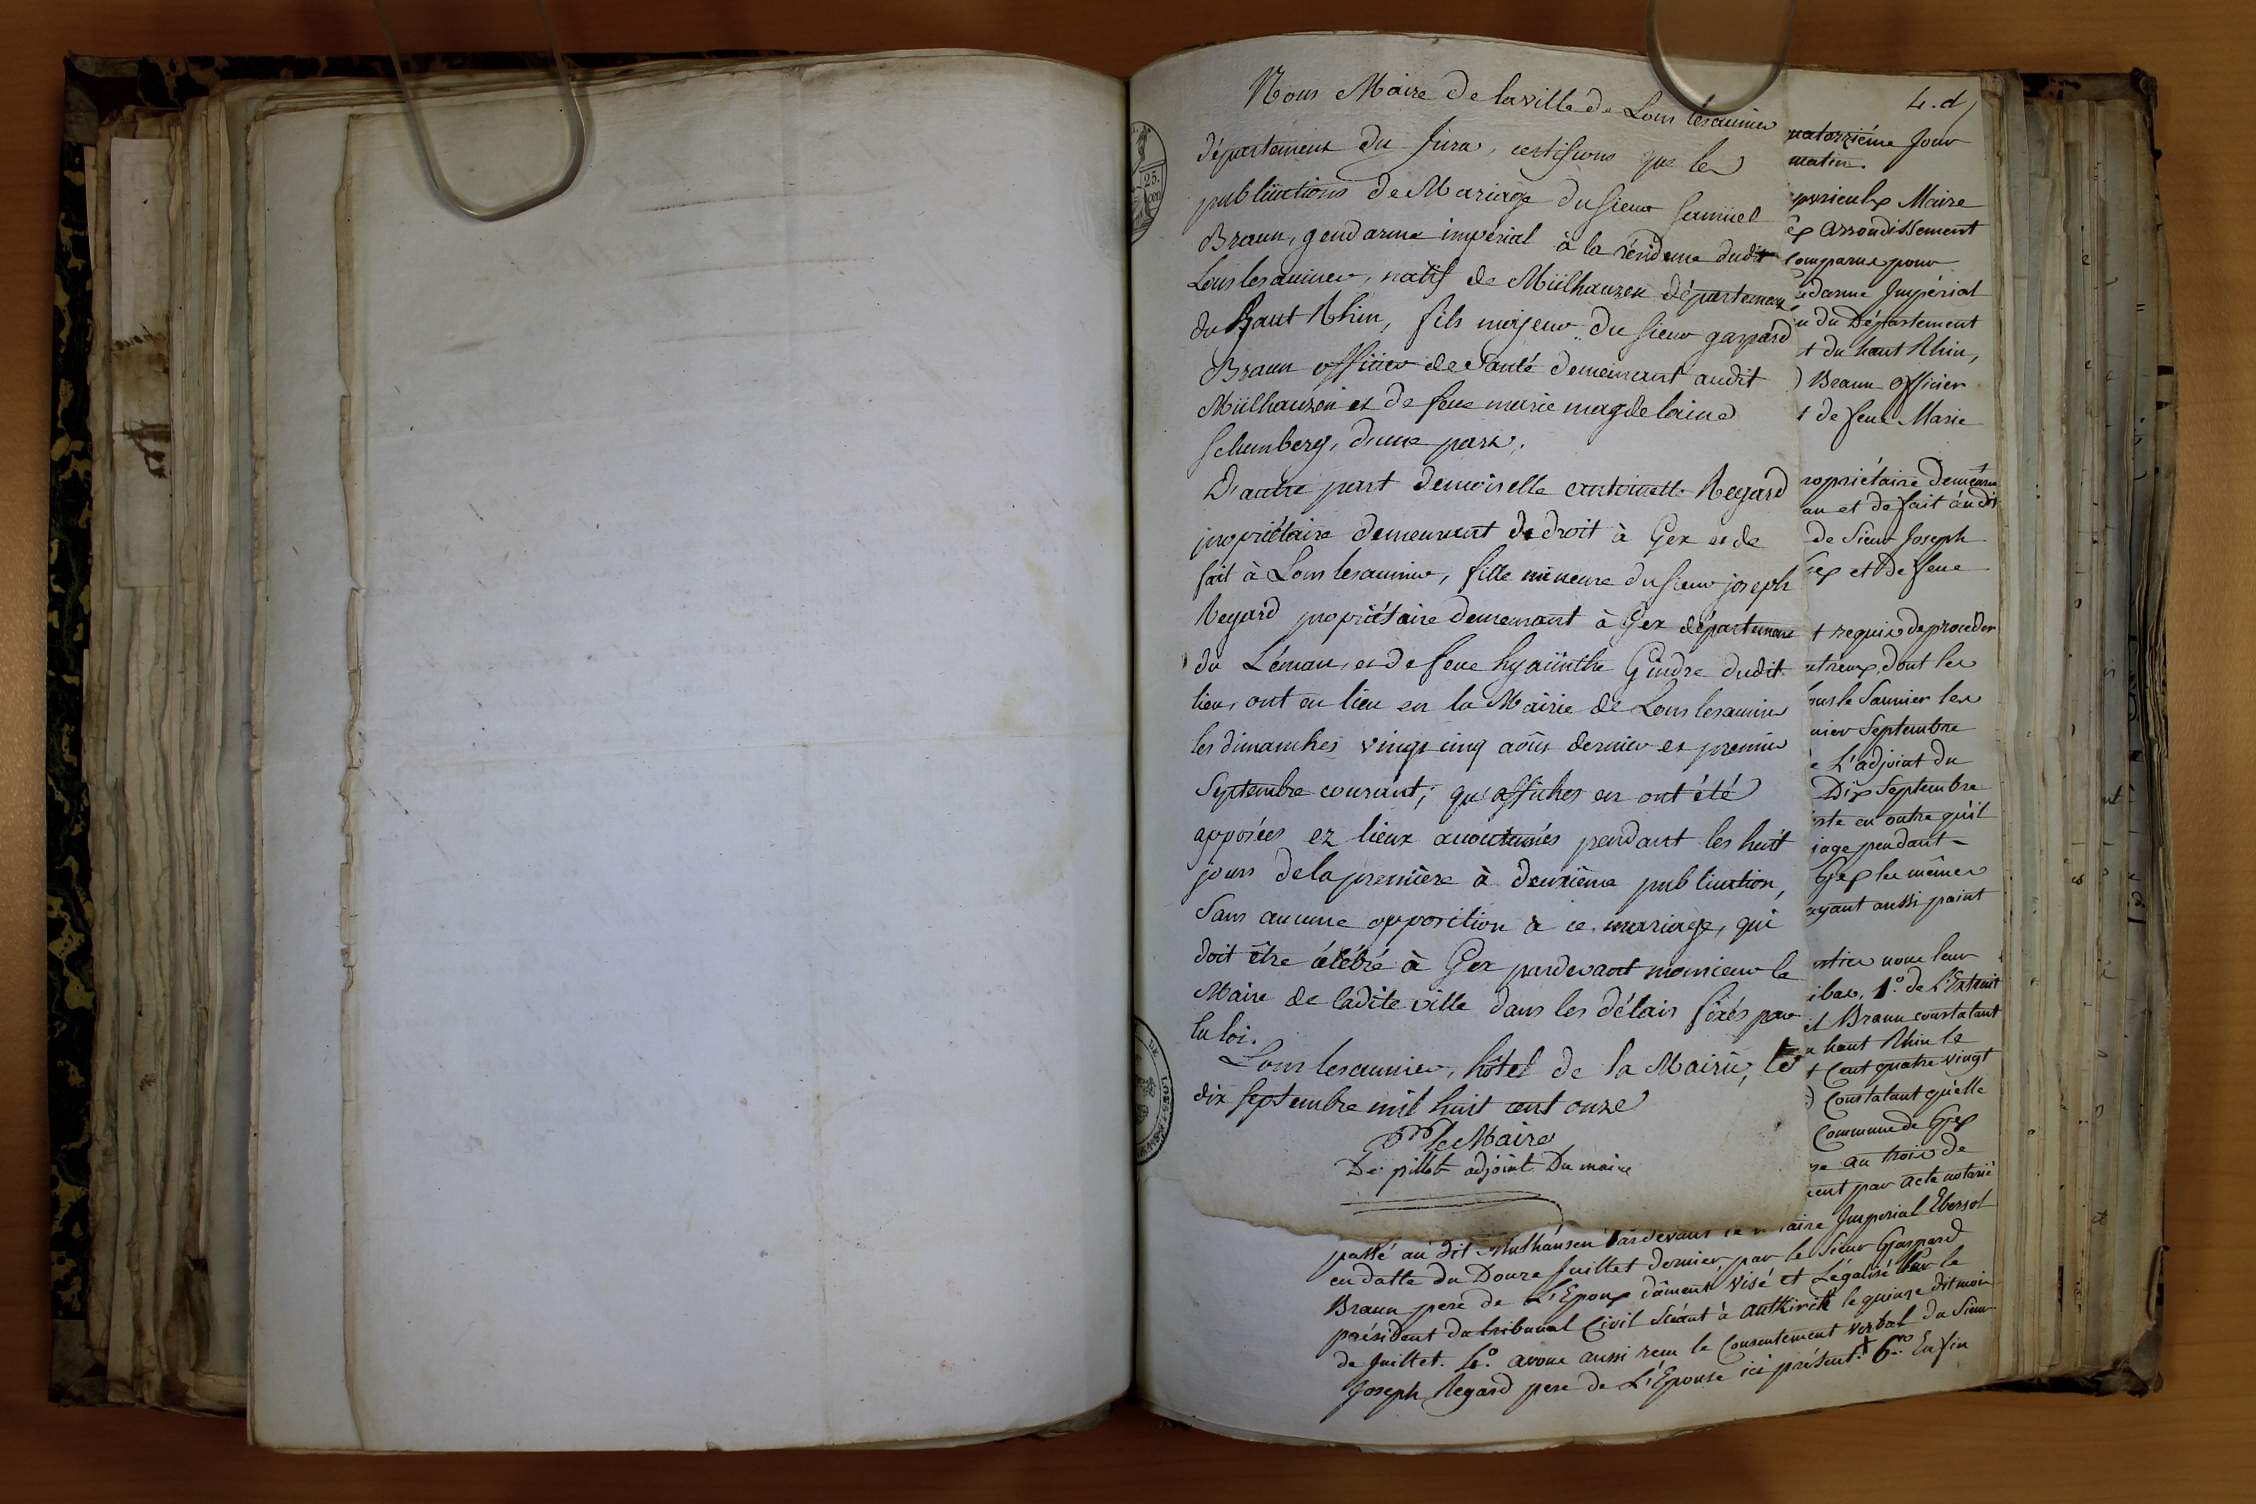 Nous Maire de la ville de Lons lesaunier
département du Jura, certifions que les
publications de Mariage du sieur Samuel
Braun, gendarme impérial à la résidence dudit
Lons lesaunier, natif de Mülhauzen département
du haut Rhin, fils majeur du sieur gaspard
Braun officier de Santé demeurant audit
Mülhauzen et de feue marie magdelaine
Schumberg, d'une part.
D'autre part demoiselle antoinette Regard
propriétaire demeurant de droit à Gex et de
fait à Lons lesaunier, fille mineure du sieur joseph
Regard propriétaire demeurant à Gex département
du Léman, et de feue hyacinthe Gindre dudit
lieu, ont eu lieu en la Mairie de Lons lesaunier
les dimanches vingt cinq août dernier et premier
Septembre courant; qu'affiches en ont été
apposées ez lieux accoutumés pendant les huit
jours de la première à deuxième publication,
Sans aucune opposition à ce mariage, qui
doit être célébré à Gex pardevant monsieur le
Maire de ladite ville dans les délais fixés par
la loi.
Lons lesaunier, hôtel de la Mairie, le
dix septembre mil huit cent onze
Pr le Maire
De pillot adjoint Du maire
25.
4. d
uatorzième Jour
matin.
Maire
ex arrondissement
comparus pour
ndarme Impérial
n du Département
t du haut Rhin,
Braun officier
t de feue Marie
ropriétaire demeurn
an et de fait audit
de Sieur Joseph
ex et de feue
t requis de proceder
ntreux dont les
ons le Saunier les
mier Septembre
e L'adjoint du
Dix Septembre
ste en outre qu'il
iage pendant
Gex les mêmes
ayant aussi point
arties nous leur
ibas, 1º. de L'Extrait
el Braun constatant
u haut Rhin le
t Cent quatre vingt
Constatant quelle
Commune de Gex
re au trois de
ent par acte notarié
passé au dit Mulhausen Pardevant le taire Imperial Ebersol
en datte du Douze Juillet dernier, par le Sieur Gaspard
Braun pere de L'Epoux dûment visé et Légalisé Par le
président du tribunal Civil Séant à altkirck le quinze dit mois
de Juillet. 4º. avons aussi reçu le Consentement verbal du Sieur
Joseph Regard pere de L'Epouse ici présent. + 6º. Enfin